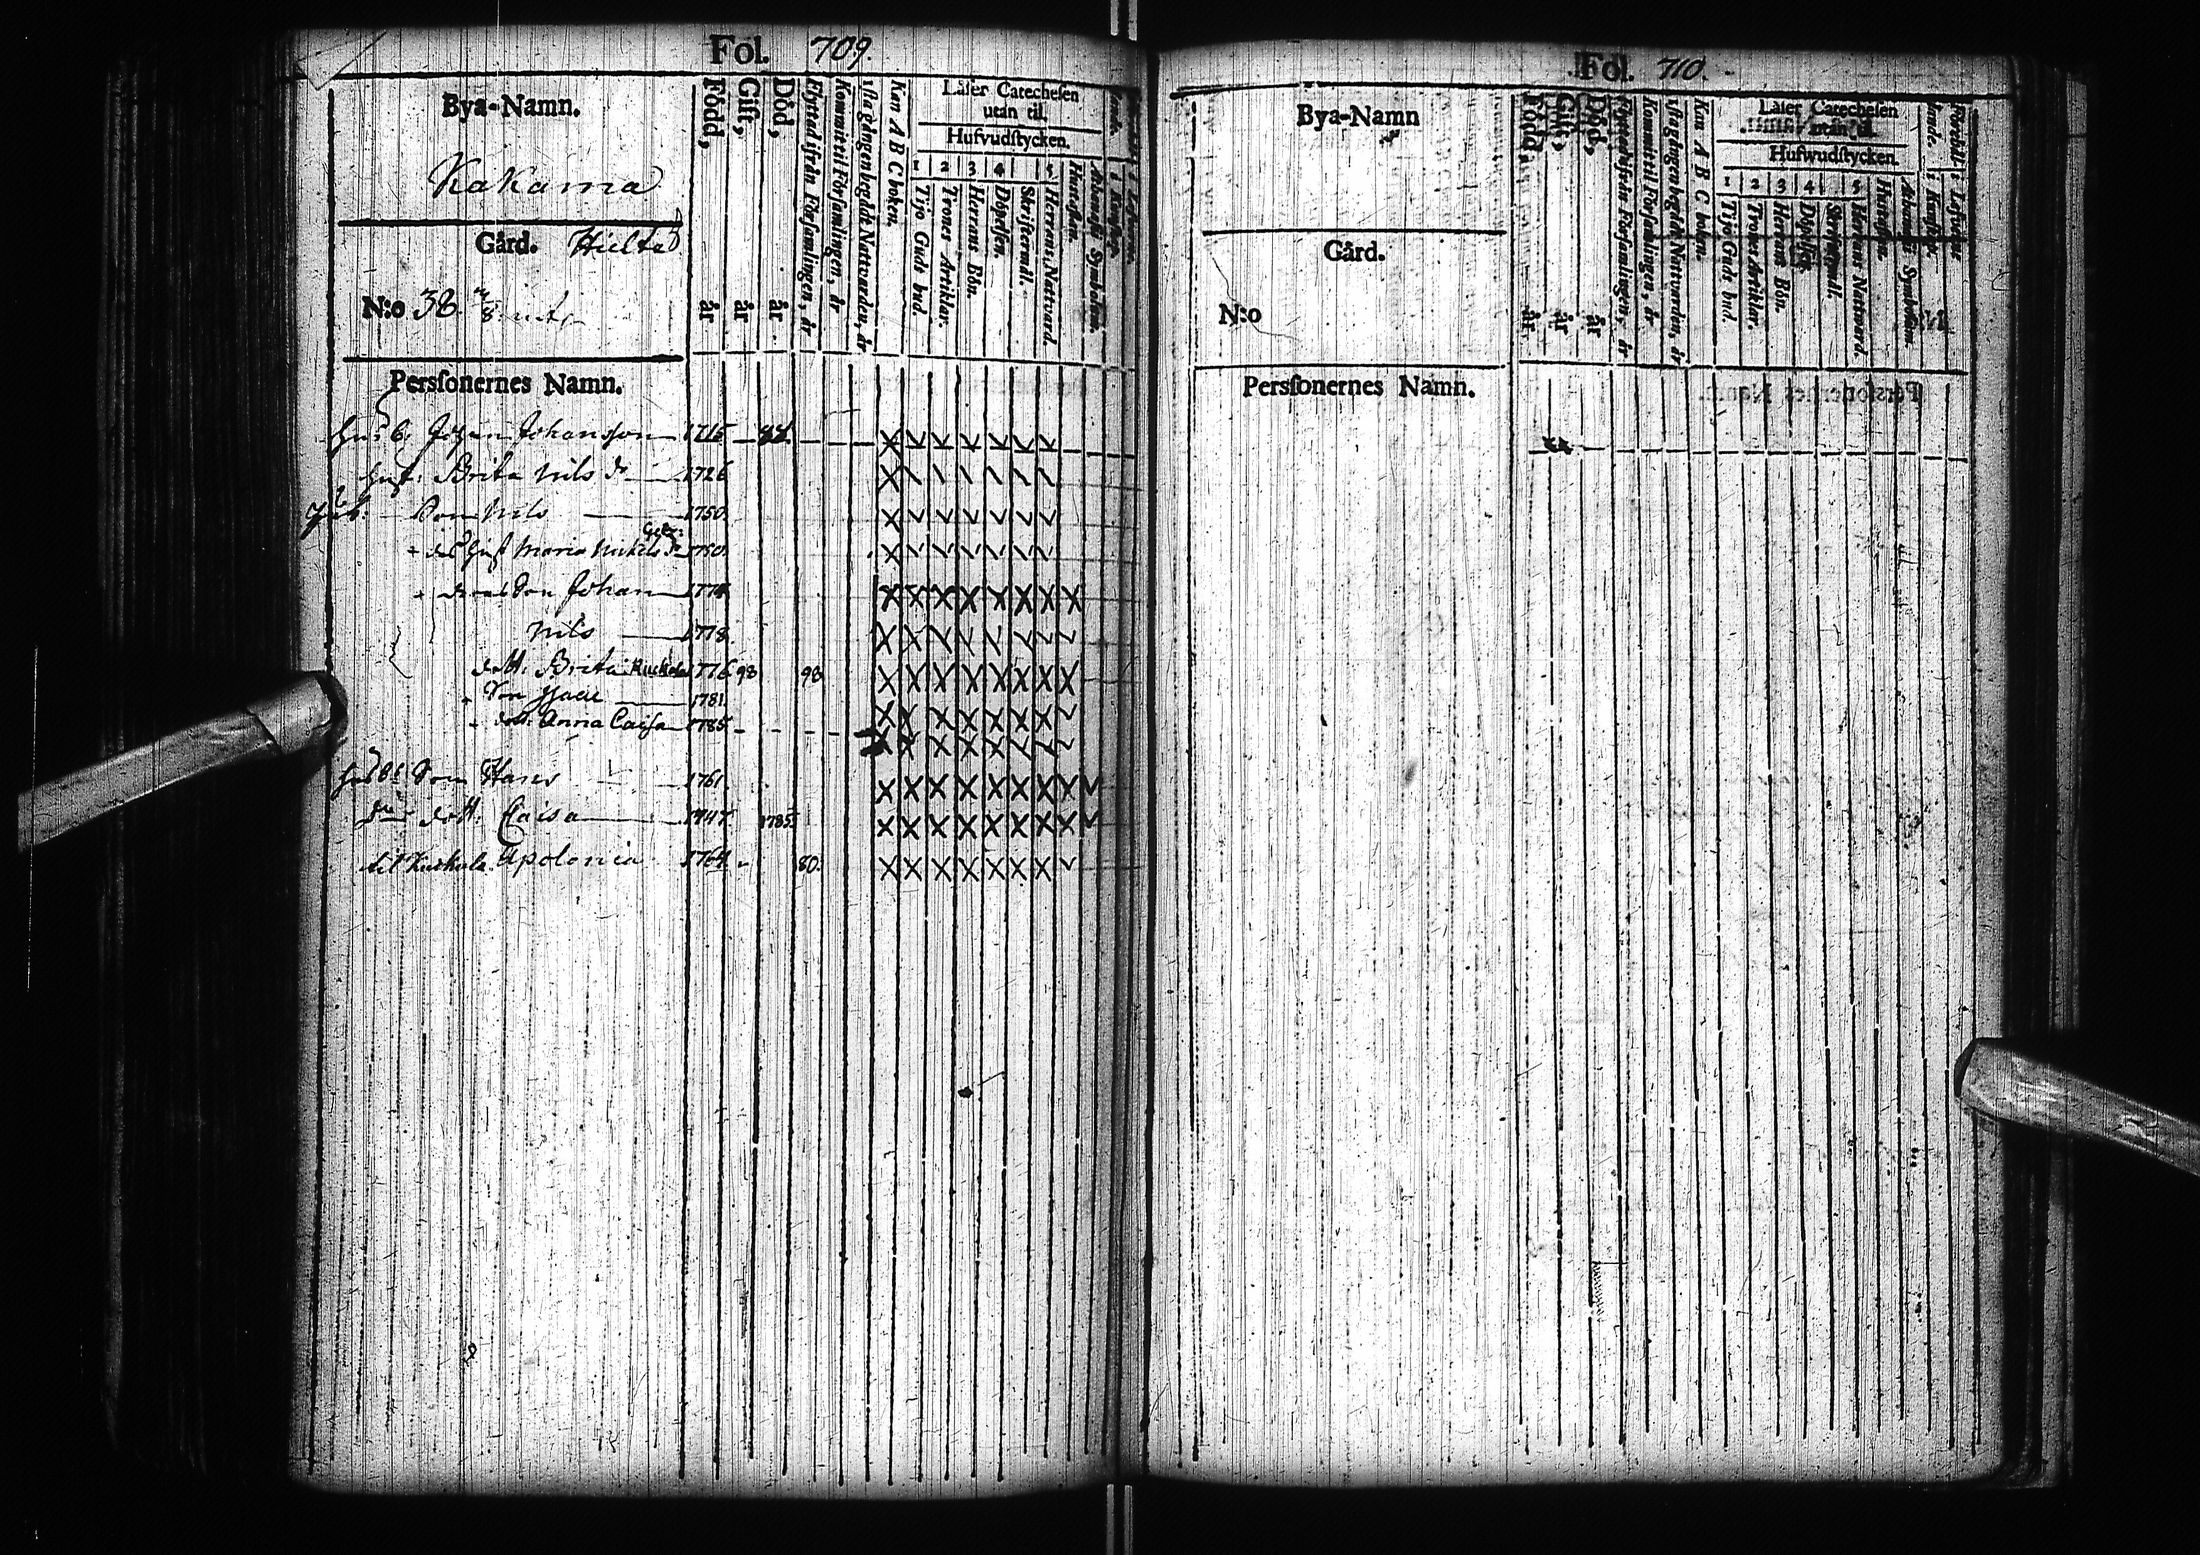 Fol. 709.
Bya-Namn.
Kakama
Gård. Hielta
N:o 38.
Född, år
Gift, år
Död, år
Flyttad ifrån Församlingen, år
Kommit til Församlingen, år
1sta gången begådt Nattvarden, år
Kan A B C boken.
Läser Catechesen
utan til.
Hufvudstycken.
1 2 3 4 5
Tijo Guds bud.
Trones Artiklar.
Herrans Bön.
Döpelsen.
Skriftermål.
Herrans Nattvard.
Hustaflan.
Athanasii Symbolum.
Personernes Namn.
Johan Johansson 1715 — 44
hust. Brita Nils dr 1726
Son Nils 1750.
hust Maria Michels dr 1750.
Son Johan 1774
Nils 1778.
dott. Brita Ruokola 1776 98 98
Son Isaac 1781.
dott. Anna Caisa 1785.
Son Hans 1761.
dott. Caisa 1747 1785.
til Ruokola. Apolonia 1764 80.
Fol. 710.
Bya-Namn
Gård.
N:o
Född, år
Gift, år
Död, år
Flyttad ifrån Församlingen, år
Kommit til Församlingen, år
1sta gången begådt Nattvarden, år
Kan A B C boken.
Läser Catechesen
utan til.
Hufwudstycken.
1 2 3 4 5
Tijo Guds bud.
Trones Artiklar.
Herrans Bön.
Döpelsen.
Skriftermål.
Herrans Nattward.
Hustaflan.
Athanasii Symbolum.
Personernes Namn.